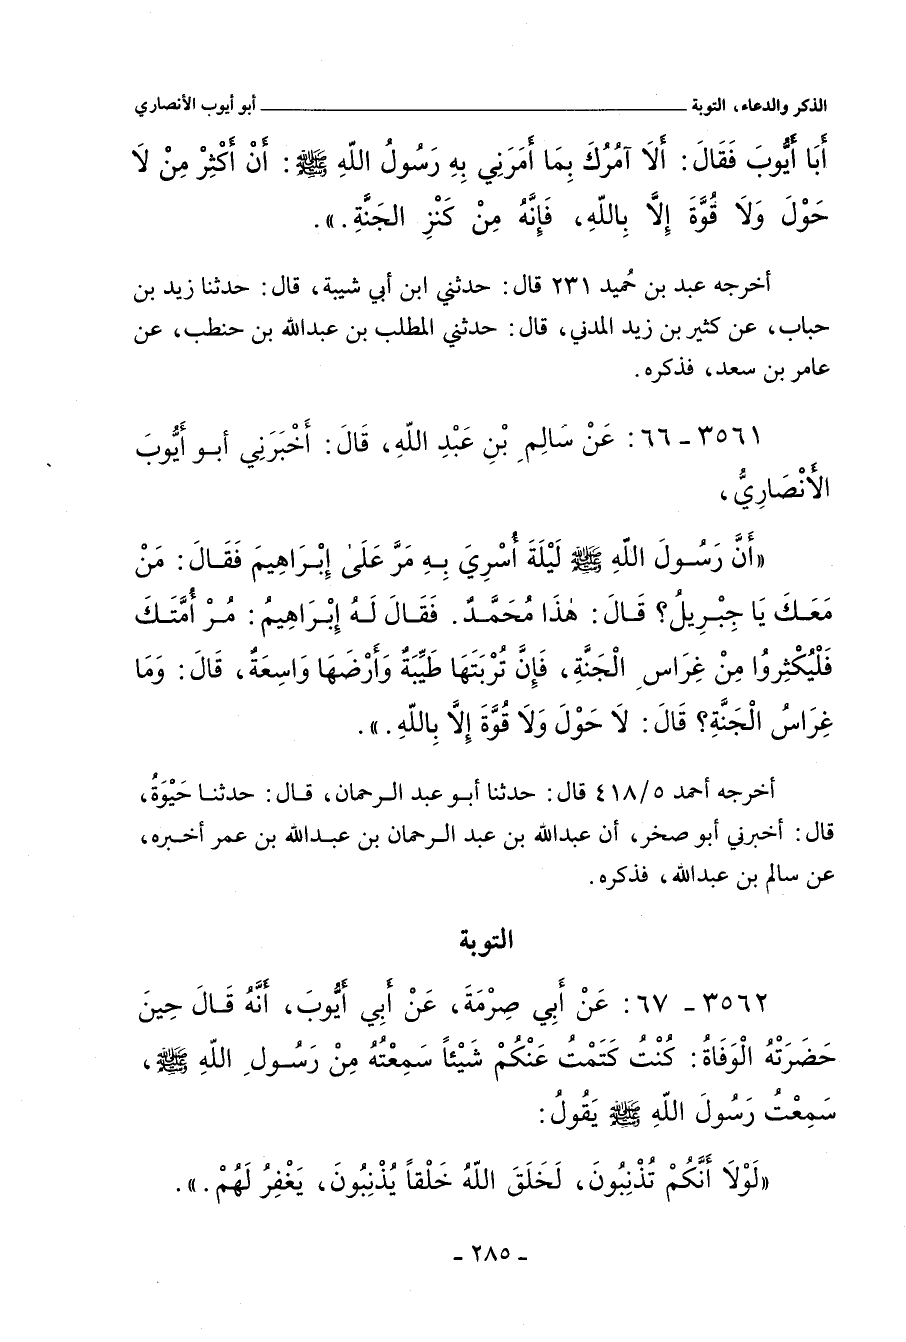 الذكر والدعاء، التوبة ــــــــــــــــ أبو أيوب الأنصاري
أَبَا أَيُّوبَ فَقَالَ: أَلَا آمُرُكَ بِمَا أَمَرَنِي بِهِ رَسُولُ اللّهِ ﷺ: أَنْ أُكْثِرَ مِنْ لَا
حَوْلَ وَلَا قُوَّةَ إِلَّا بِاللّهِ، فَإِنَّهُ مِنْ كَنْزِ الجَنَّةِ.».
أخرجه عبد بن حُميد ٢٣١ قال: حدثني ابن أبي شيبة، قال: حدثنا زيد بن
حباب، عن كثير بن زيد المدني، قال: حدثني المطلب بن عبدالله بن حنطب، عن
عامر بن سعد، فذكره.
٣٥٦١ - ٦٦: عَنْ سَالِمِ بْنِ عَبْدِ اللّهِ، قَالَ: أَخْبَرَنِي أبو أَيُّوبَ
الأَنْصَارِيُّ،
«أَنَّ رَسُولَ اللّهِ ﷺ لَيْلَةَ أُسْرِيَ بِهِ مَرَّ عَلَىٰ إِبْرَاهِيمَ فَقَالَ: مَنْ
مَعَكَ يَا جِبْرِيلُ؟ قَالَ: هٰذَا مُحَمَّدٌ. فَقَالَ لَهُ إِبْرَاهِيمُ: مُرْ أُمَّتَكَ
فَلْيُكْثِرُوا مِنْ غِرَاسِ الْجَنَّةِ، فَإِنَّ تُرْبَتَهَا طَيِّبَةٌ وَأَرْضَهَا وَاسِعَةٌ، قَالَ: وَمَا
غِرَاسُ الْجَنَّةِ؟ قَالَ: لَا حَوْلَ وَلَا قُوَّةَ إِلَّا بِاللّهِ.».
أخرجه أحمد ٤١٨/٥ قال: حدثنا أبو عبد الرحمان، قال: حدثنا حَيْوَةُ،
قال: أخبرني أبو صخر، أن عبدالله بن عبد الرحمان بن عبدالله بن عمر أخبره،
عن سالم بن عبدالله، فذكره.
التوبة
٣٥٦٢ - ٦٧: عَنْ أَبِي صِرْمَةَ، عَنْ أَبِي أَيُّوبَ، أَنَّهُ قَالَ حِينَ
حَضَرَتْهُ الْوَفَاةُ: كُنْتُ كَتَمْتُ عَنْكُمْ شَيْئاً سَمِعْتُهُ مِنْ رَسُولِ اللّهِ ﷺ،
سَمِعْتُ رَسُولَ اللّهِ ﷺ يَقُولُ:
«لَوْلَا أَنَّكُمْ تُذْنِبُونَ، لَخَلَقَ اللّهُ خَلْقاً يُذْنِبُونَ، يَغْفِرُ لَهُمْ.».
- ٢٨٥ -